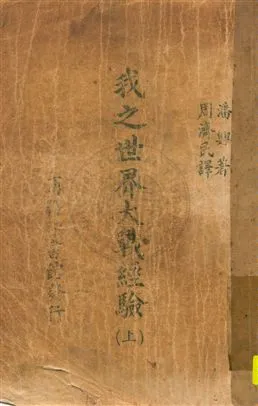 潘興著
周濟民譯
我之世界大戰經驗
(上)
發行